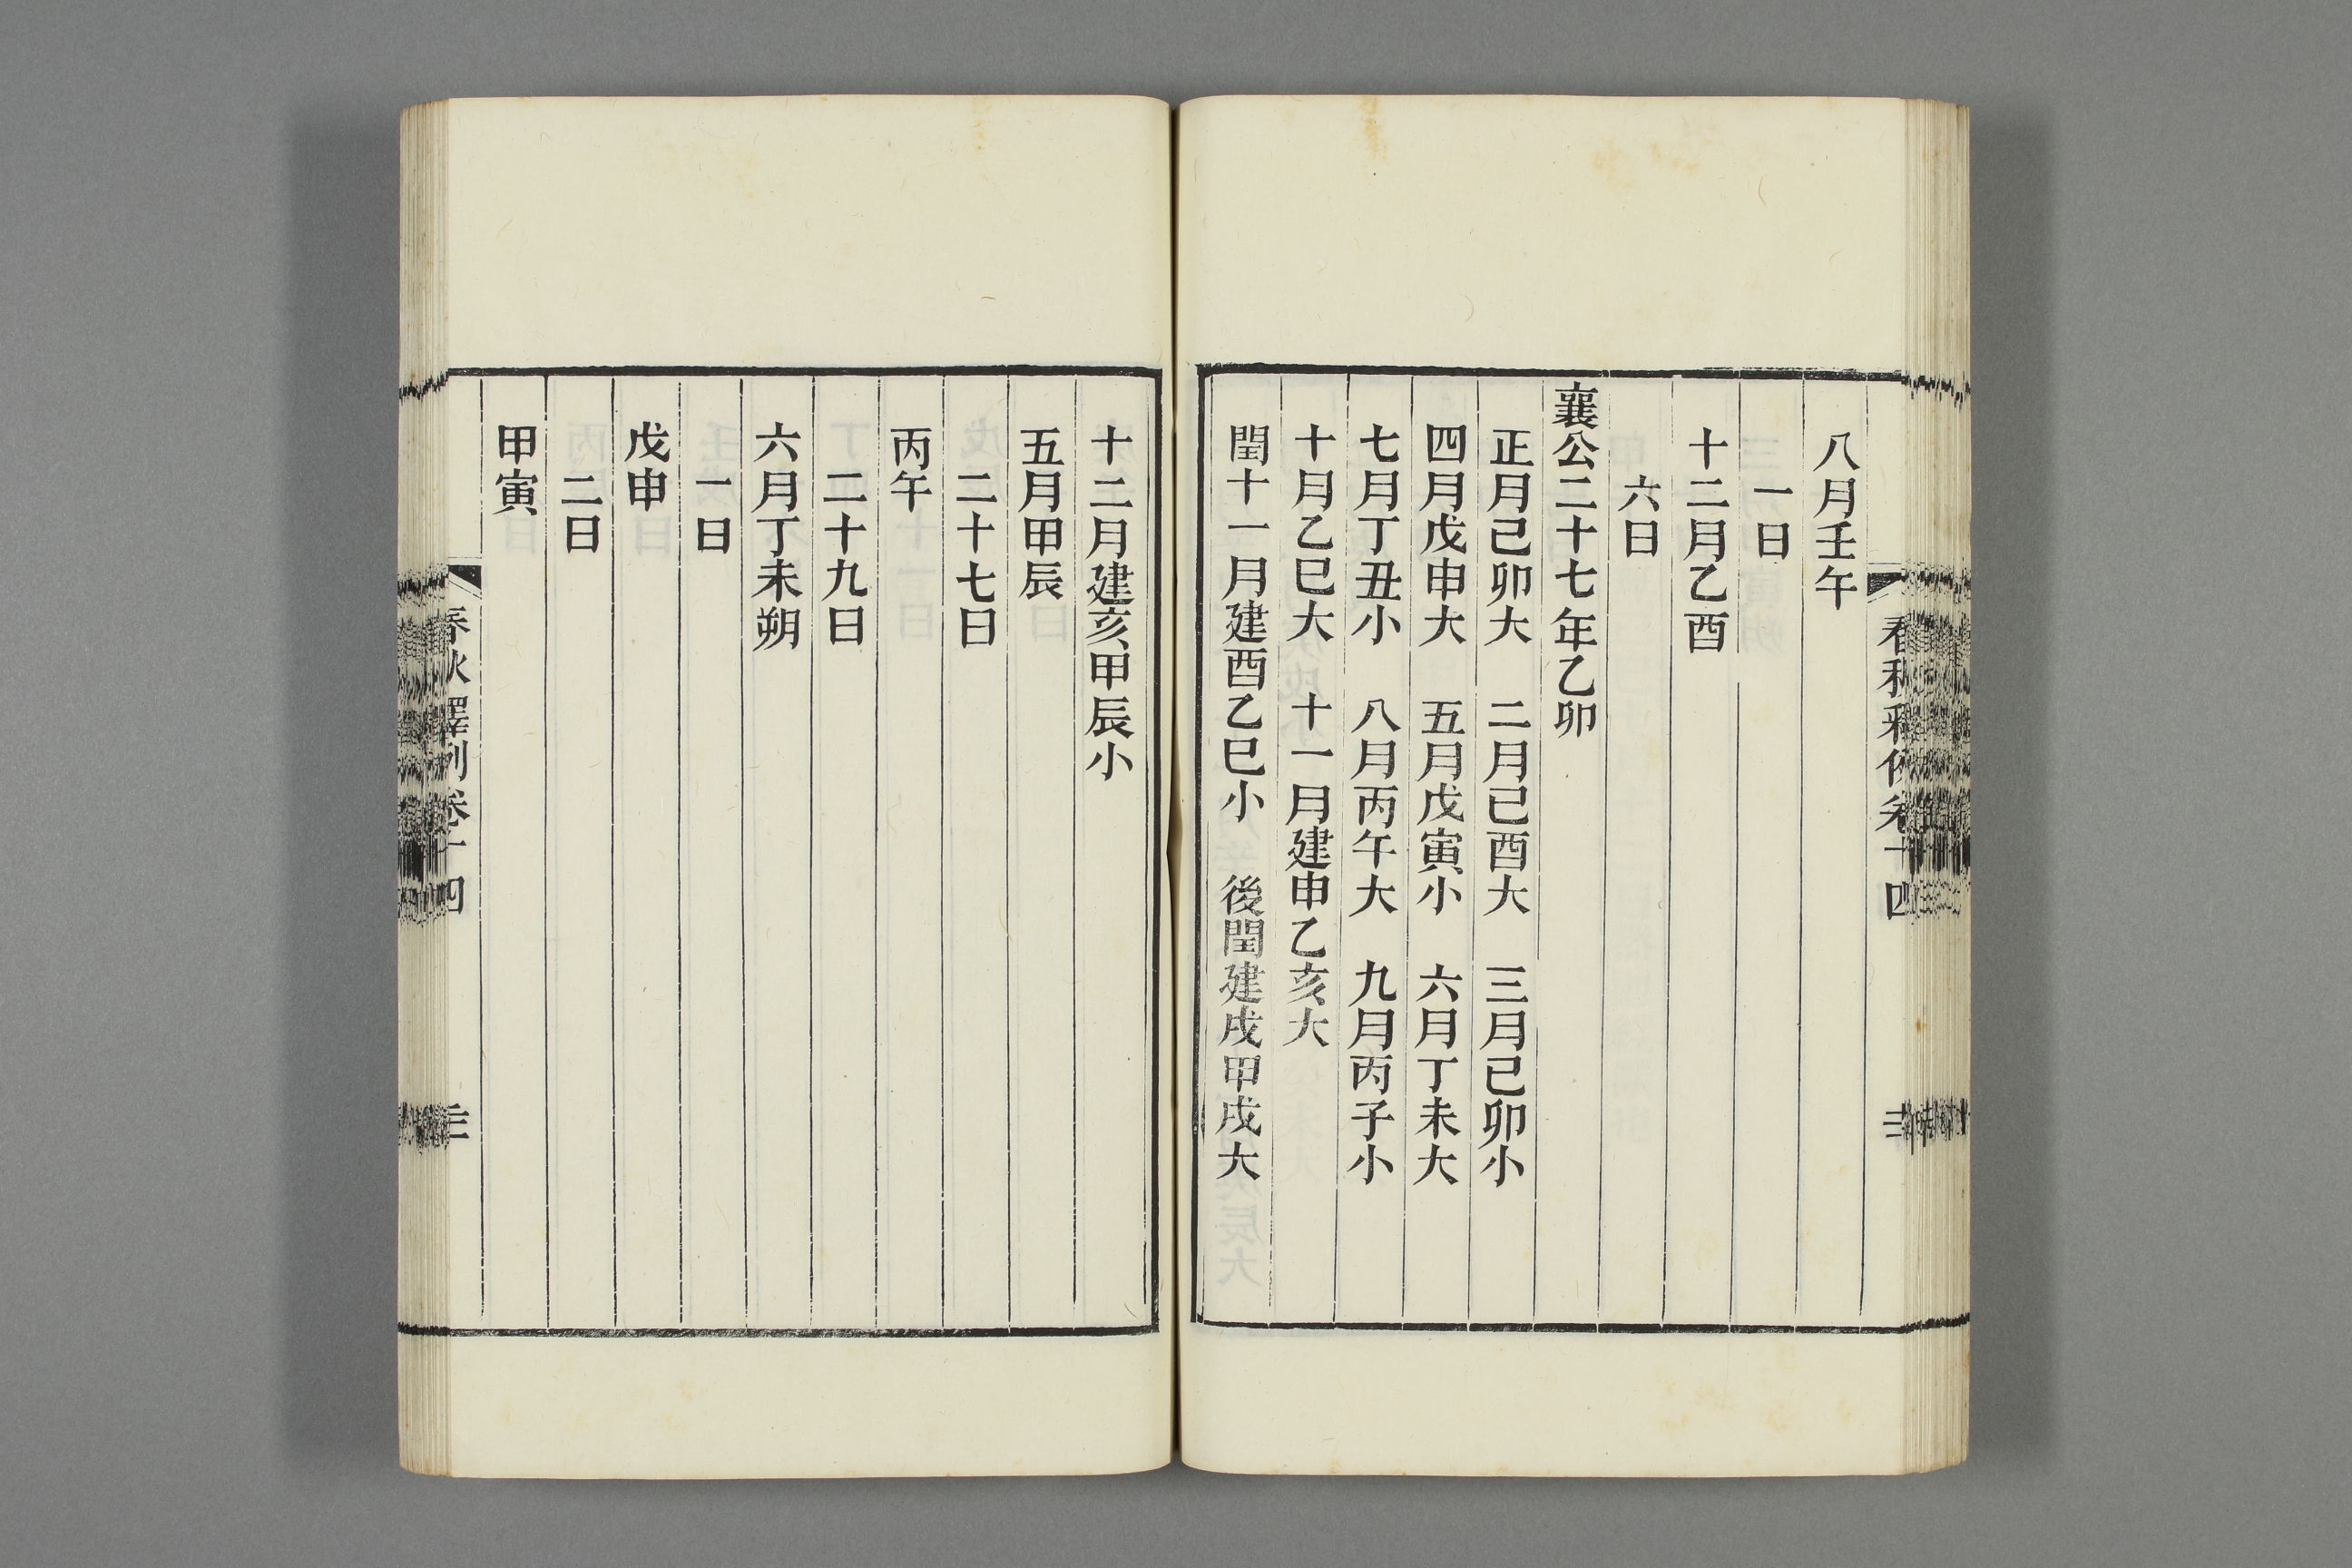 八月壬午
一日
十二月乙酉
六日
襄公二十七年乙卯
正月己卯大　二月己酉大　三月己卯小
四月戊申大　五月戊寅小　六月丁未大
七月丁丑小　八月丙午大　九月丙子小
十月乙巳大　十一月建申乙亥大
閏十一月建酉乙巳小　後閏建戌甲戌大
十二月建亥甲辰小
五月甲辰
二十七日
丙午
二十九日
六月丁未朔
一日
戊申
二日
甲寅
春秋釋例卷十四